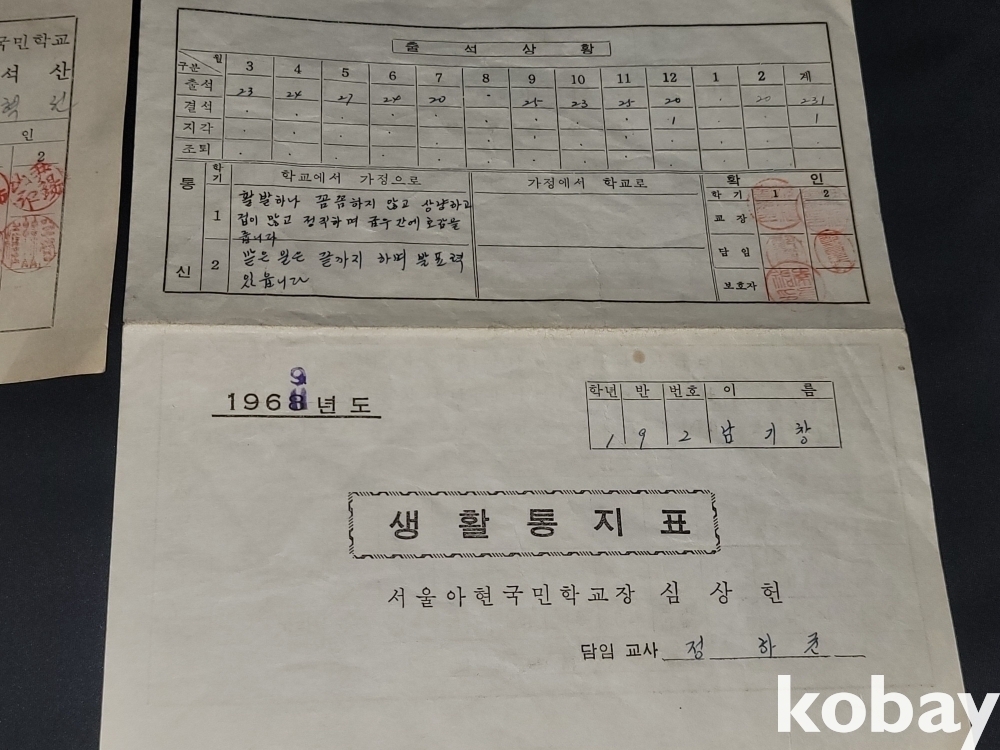 국민학교
석 산
인
2
출 석 상 황
구분 월 3 4 5 6 7 8 9 10 11 12 1 2 계
출석 23 24 27 24 20 · 25 23 25 20 · 20 231
결석 · · · · · · · · 1 · · 1
지각
조퇴
통 신
학기 학교에서 가정으로 가정에서 학교로
1 활발하나 꼼꼼하지 않고 상냥하고
겁이 많고 정직하며 급우간에 호감을
줍니다
2 맡은 일은 끝까지 하며 발표력
있읍니다
확 인
학 기 1 2
교 장
담 임
보호자
1969년도
학년 반 번호 이 름
1 9 2 남 기 창
생 활 통 지 표
서울아현국민학교장 심 상 헌
담임 교사 정 하
kobay